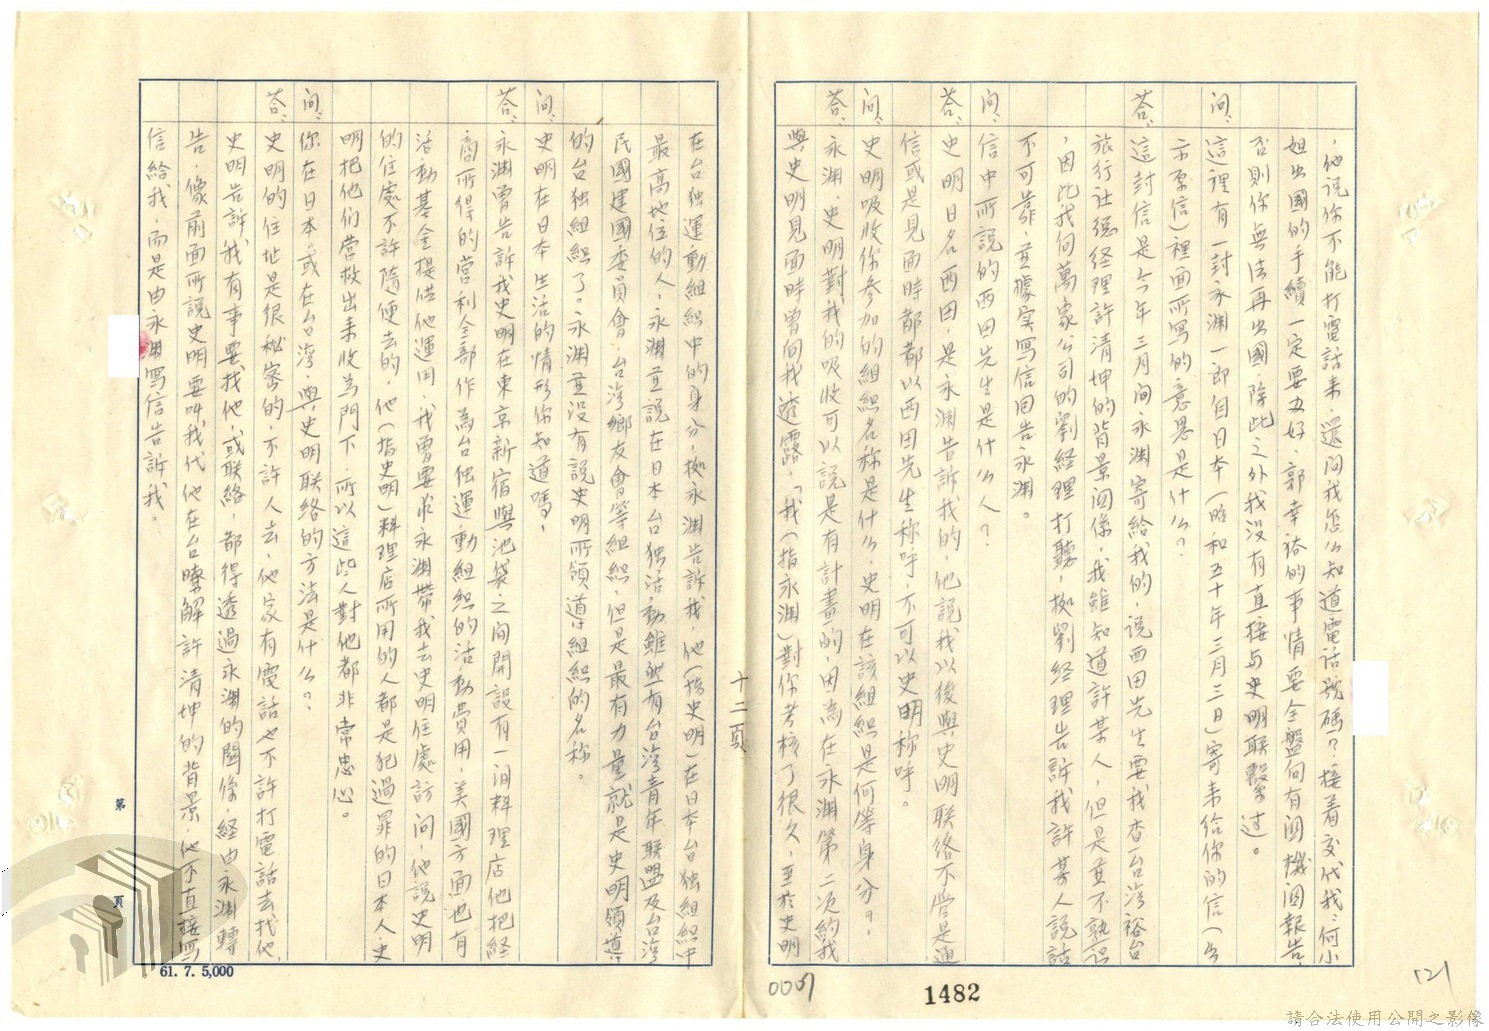 ，他說你不能打電話来，還问我怎么知道電話號碼？接着交代我：何小
姐出國的手續一定要办好，郭幸裕的事情要全盤向有関機関報告，
否則你無法再出國，除此之外我没有直接与史明联繫過。
问：這裡有一封永渊一郎自日本（昭和五十年三月三日）寄来给你的信（
示原信）裡面所寫的意思是什么？
答：這封信是今年三月间永渊寄給我的，说西田先生要我查一台湾裕台
旅行社總経理許清坤的背景関係，我雖知道許某人，但是並不熟识
，因此我向萬家公司的劉経理打聽，拠劉経理告訴我許某人說話
不可靠，並據实寫信回告永渊。
问：信中所説的西田先生是什么人？
答：史明日名西田，是永渊告訴我的，他説我以後與史明联络不管是通
信或是見面時都以西田先生称呼，不可以史明称呼。
问：史明吸收你参加的組組名称是什么，史明在該組織是何等身分？
答：永渊、史明對我的吸收可以說是有計畫的，因為在永渊第二次約我
與史明見面時曾向我透露，「我（指永渊）對你考核了很久，至於史明
十二頁
在台独運動組織中的身分，拠永渊告訴我，他（指史明）在日本台独組織中
最高地位的人，永渊並説在日本台独活動雖然有台湾青年联盟及台湾
民國建國委員會，台湾鄉友會等組織，但是最有力量就是史明領導
的台独組織了。永渊並没有説史明所領導組織的名称。
问：史明在日本生活的情形你知道嗎，
答：永渊曾告訴我史明在東京新宿與池袋之间開設有一间料理店他把経
商所得的営利全部作為台独運動組織的活動費用，美國方面也有
活動基金提供他運用，我曾要求永渊帶我去史明住處訪问，他説史明
的住處不許隨便去的，他（指史明）料理店所用的人都是犯過罪的日本人史
明把他们营救出来收為門下，所以這些人對他都非常忠心。
问：你在日本或在台湾，與史明联络的方法是什么？
答：史明的住址是很秘密的，不許人去，他家有電話也不許打電話去找他
史明告訴我有事要找他，或联络，都得透過永渊的関係，経由永渊轉
告，像前面所説史明要叫我代他在台瞭解許清坤的背景，他不直接寫
信給我，而是由永渊寫信告訴我。
第 頁
61. 7. 5,000
0007
1482
121
請合法使用公開之影像